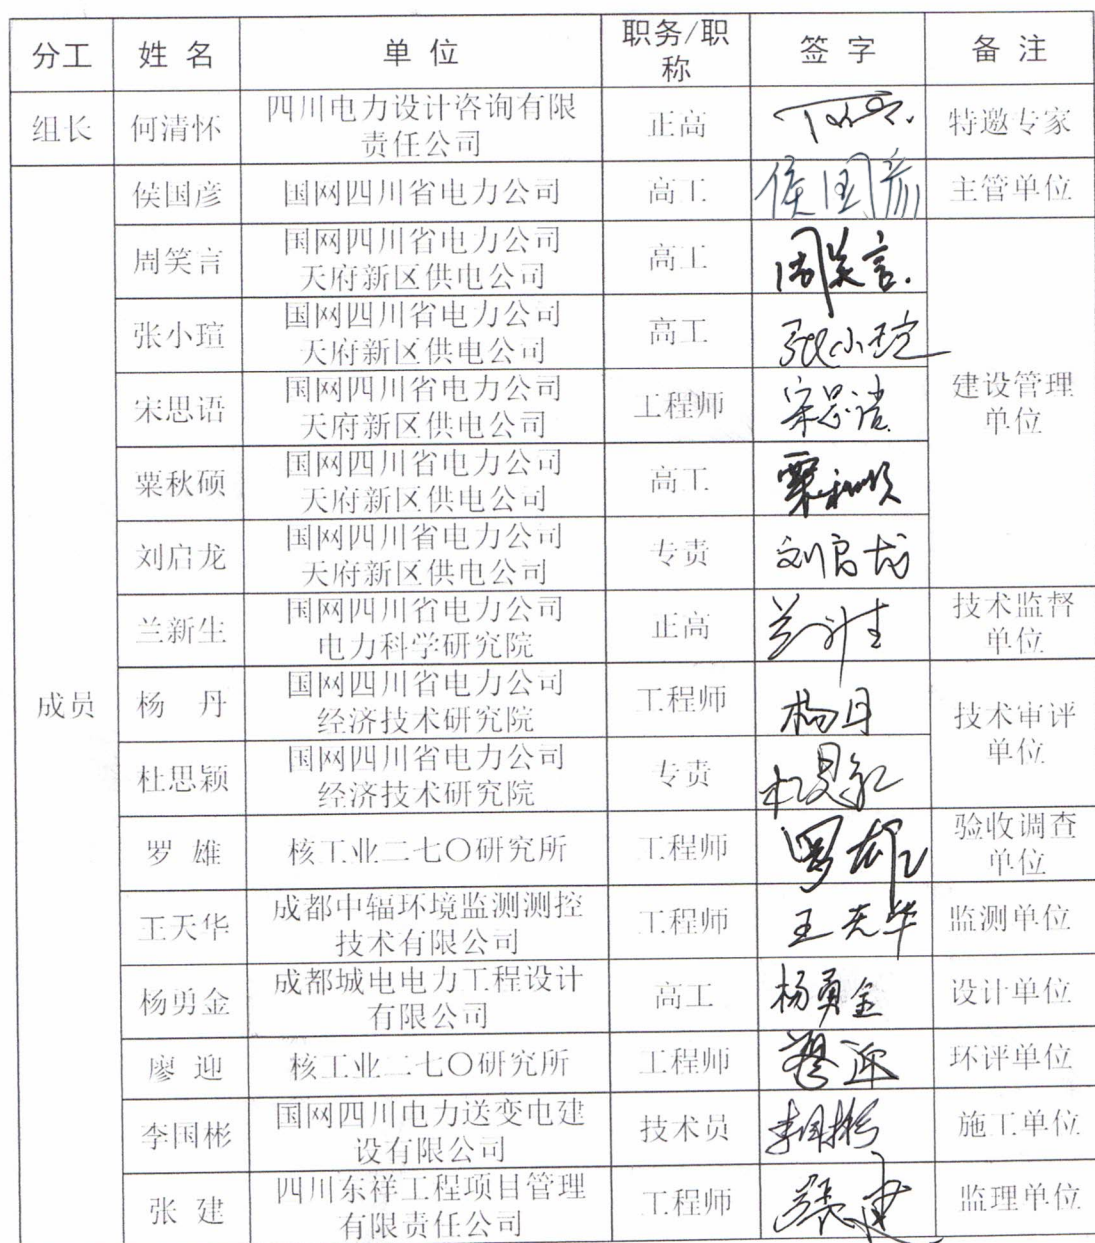 分工 姓 名 单 位 职务/职称 签 字 备 注
组长 何清怀 四川电力设计咨询有限责任公司 正高 特邀专家
成员
侯国彦 国网四川省电力公司 高工 侯国彦 主管单位
周笑言 国网四川省电力公司天府新区供电公司 高工 周笑言 建设管理单位
张小瑄 国网四川省电力公司天府新区供电公司 高工 张小瑄
宋思语 国网四川省电力公司天府新区供电公司 工程师 宋思语
粟秋硕 国网四川省电力公司天府新区供电公司 高工 粟秋硕
刘启龙 国网四川省电力公司天府新区供电公司 专责 刘启龙
兰新生 国网四川省电力公司电力科学研究院 正高 兰新生 技术监督单位
杨 丹 国网四川省电力公司经济技术研究院 工程师 杨丹 技术审评单位
杜思颖 国网四川省电力公司经济技术研究院 专责
罗 雄 核工业二七〇研究所 工程师 罗雄 验收调查单位
王天华 成都中辐环境监测测控技术有限公司 工程师 王天华 监测单位
杨勇金 成都城电电力工程设计有限公司 高工 杨勇金 设计单位
廖 迎 核工业二七〇研究所 工程师 廖迎 环评单位
李国彬 国网四川电力送变电建设有限公司 技术员 李国彬 施工单位
张 建 四川东祥工程项目管理有限责任公司 工程师 张建 监理单位